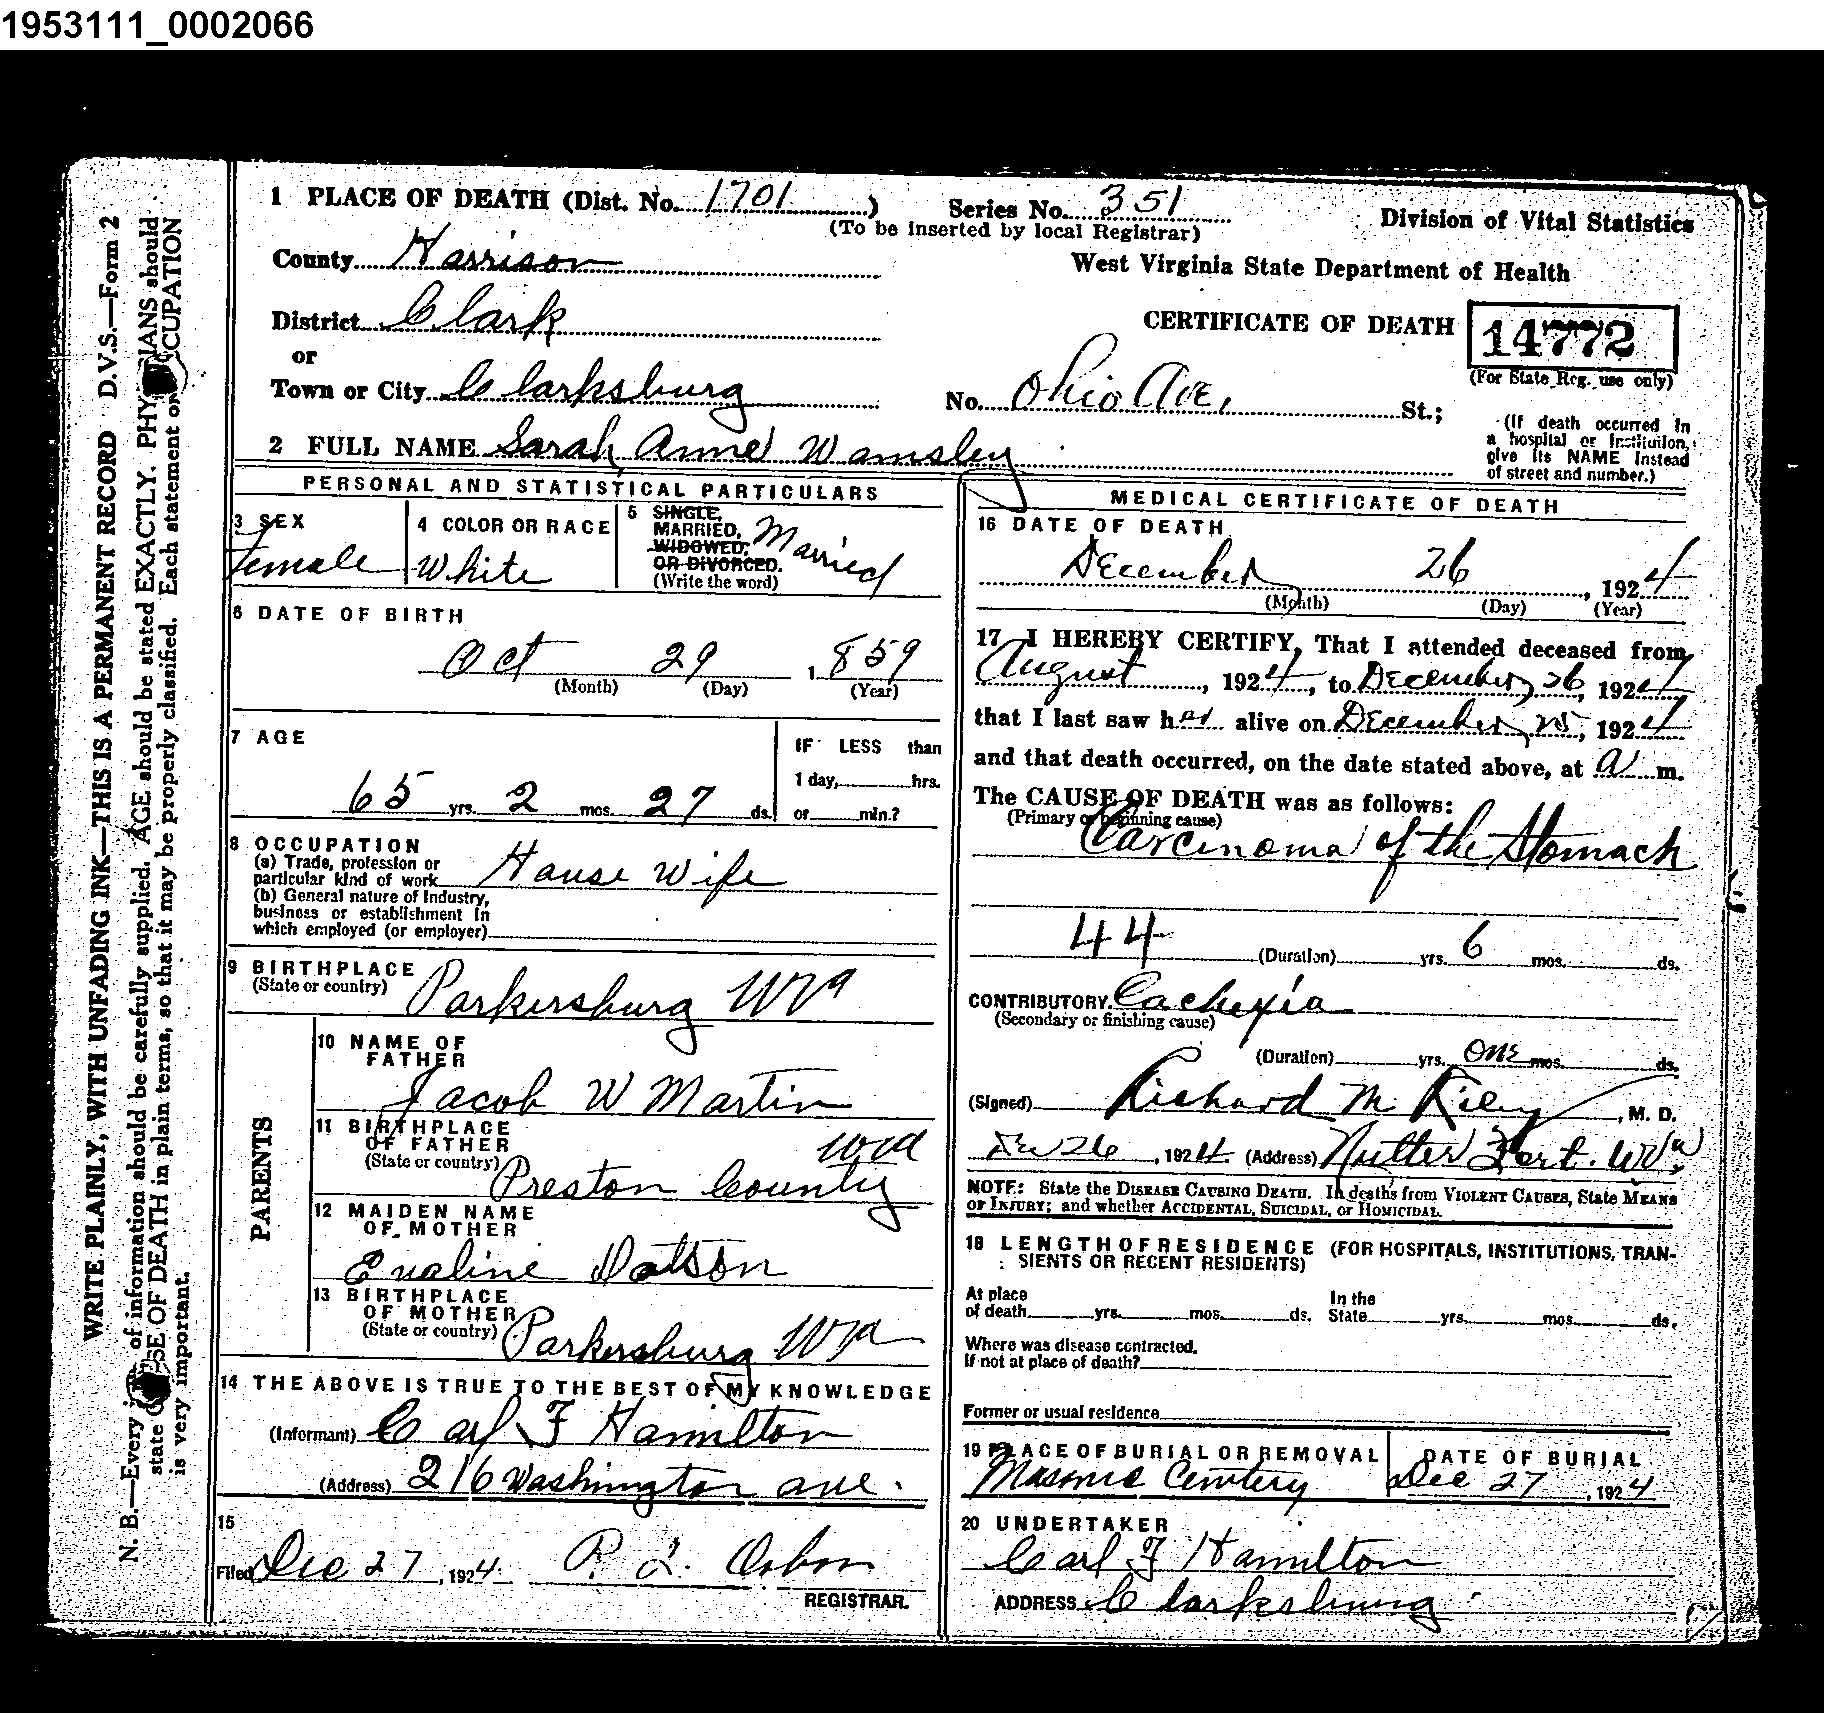 1953111_0002066
1 PLACE OF DEATH (Dist. No. 1701 )
Series No. 351
(To be inserted by local Registrar)
Division of Vital Statistics
County Harrison
West Virginia State Department of Health
District Clark
CERTIFICATE OF DEATH
14772
(For State Reg. use only)
or
Town or City Clarksburg
No. Ohio Ave, St.;
(If death occurred in
a hospital or institution,
give its NAME instead
of street and number.)
2 FULL NAME Sarah Anne Wamsley
PERSONAL AND STATISTICAL PARTICULARS
3 SEX
Female
4 COLOR OR RACE
White
5 SINGLE,
MARRIED,
WIDOWED,
OR DIVORCED.
(Write the word)
Married
6 DATE OF BIRTH
Oct 29 , 859
(Month) (Day) (Year)
7 AGE
65 yrs. 2 mos. 27 ds.
IF LESS than
1 day, hrs.
or min.?
8 OCCUPATION
(a) Trade, profession or
particular kind of work House Wife
(b) General nature of Industry,
business or establishment in
which employed (or employer)
9 BIRTHPLACE
(State or country) Parkersburg WVa
PARENTS
10 NAME OF
FATHER
Jacob W Martin
11 BIRTHPLACE
OF FATHER
(State or country) Preston County WVa
12 MAIDEN NAME
OF MOTHER
Evaline Dotson
13 BIRTHPLACE
OF MOTHER
(State or country) Parkersburg WVa
14 THE ABOVE IS TRUE TO THE BEST OF MY KNOWLEDGE
(Informant) Carl F Hamilton
(Address) 216 Washington ave.
15
Filed Dec 27, 1924. P. L. Osborn
REGISTRAR.
MEDICAL CERTIFICATE OF DEATH
16 DATE OF DEATH
December 26 , 1924
(Month) (Day) (Year)
17 I HEREBY CERTIFY, That I attended deceased from
August , 1924, to December 26, 1924
that I last saw her alive on December 25, 1924
and that death occurred, on the date stated above, at a m.
The CAUSE OF DEATH was as follows:
(Primary or beginning cause)
Carcinoma of the Stomach
44
(Duration) yrs. 6 mos. ds.
CONTRIBUTORY. Cachexia
(Secondary or finishing cause)
(Duration) yrs. one mos. ds.
(Signed) Richard M Riley , M. D.
Dec 26 , 1924. (Address) Nutter Fort. WVa.
NOTE: State the DISEASE CAUSING DEATH. In deaths from VIOLENT CAUSES, State MEANS
OF INJURY; and whether ACCIDENTAL, SUICIDAL, or HOMICIDAL.
18 LENGTH OF RESIDENCE (FOR HOSPITALS, INSTITUTIONS, TRAN-
SIENTS OR RECENT RESIDENTS)
At place
of death yrs. mos. ds.
In the
State yrs. mos. ds.
Where was disease contracted,
If not at place of death?
Former or usual residence
19 PLACE OF BURIAL OR REMOVAL
Masonic Cemtery
DATE OF BURIAL
Dec 27 , 1924
20 UNDERTAKER
Carl F Hamilton
ADDRESS Clarksburg
WRITE PLAINLY, WITH UNFADING INK—THIS IS A PERMANENT RECORD D.V.S.—Form 2
N. B.—Every of information should be carefully supplied. AGE should be stated EXACTLY. PHYSICIANS should
state CAUSE OF DEATH in plain terms, so that it may be properly classified. Each statement on OCCUPATION
is very important.